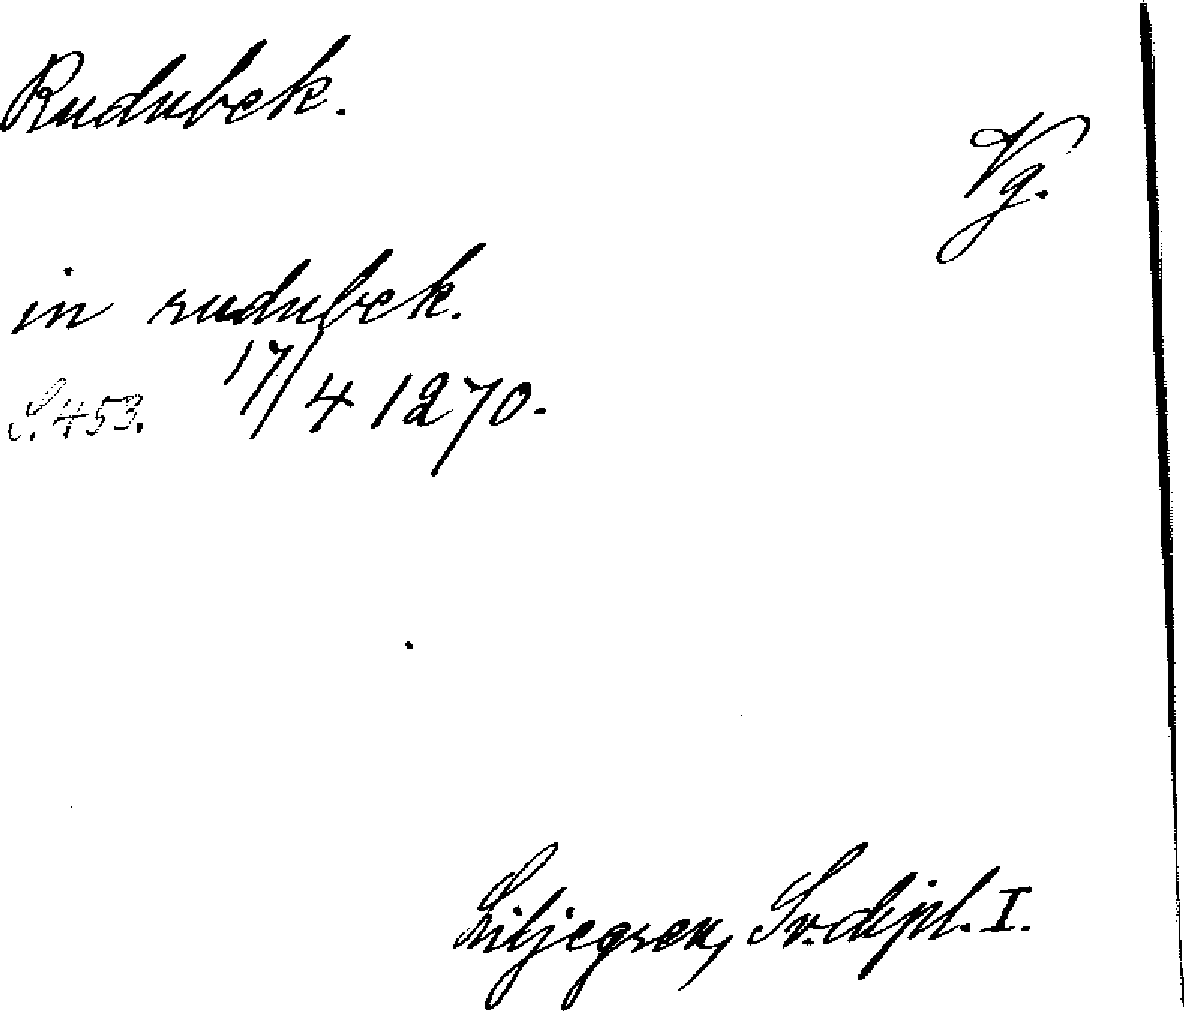 Rudubek.
Vg.
in rudubek.
S. 453. 17/4 1270.
Liljegren, Sv. dipl. I.